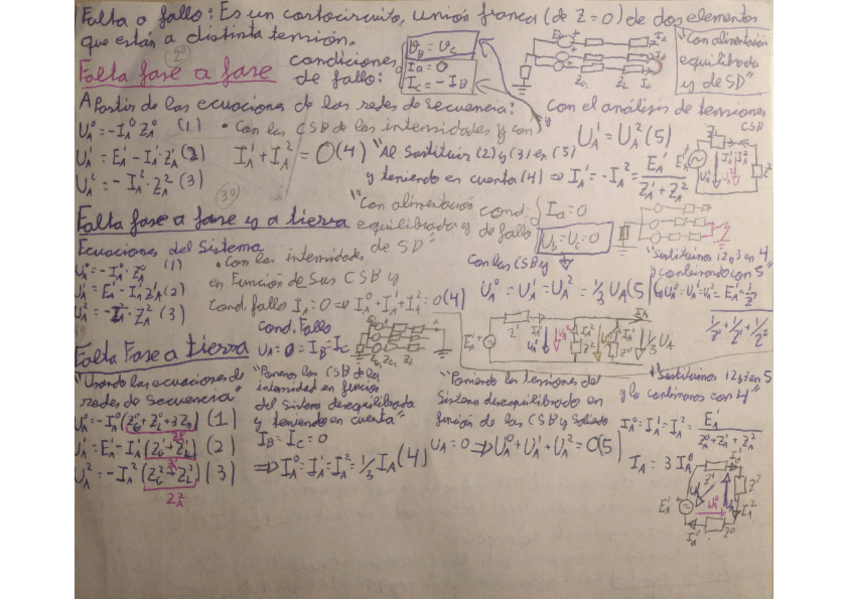 Falta o fallo: Es un cortocircuito, unión franca (de Z=0) de dos elementos
que están a distinta tensión.
2º
Falta fase a fase
condiciones
de fallo:
U_B = U_C
I_a = 0
I_C = -I_B
"Con alimentación
equilibrada
y de SD"
A Partir de las ecuaciones de las redes de secuencia:
U_A^0 = -I_A^0 Z_A^0 (1)
U_A^1 = E_A^1 - I_A^1 · Z_A^1 (2)
U_A^2 = -I_A^2 · Z_A^2 (3)
• Con las CSB de las intensidades y con
I_A^1 + I_A^2 = 0 (4)
con el análisis de tensiones
CSB
U_A^1 = U_A^2 (5)
"Al sustituir (2) y (3) en (5)
y teniendo en cuenta (4) ⇒ I_A^1 = -I_A^2 = E_A^1 / (Z_A^1 + Z_A^2)
3º
Falta fase a fase y a tierra
"Con alimentación
equilibrada y de
de SD"
cond.
fallo
I_a = 0
U_b = U_c = 0
Ecuaciones del Sistema
U_A^0 = -I_A^0 · Z_A^0 (1)
U_A^1 = E_A^1 - I_A^1 Z_A^1 (2)
U_A^2 = -I_A^2 · Z_A^2 (3)
• Con las intensidades
en Función de Sus CSB y
Cond. fallo I_A = 0 ⇒ I_A^0 + I_A^1 + I_A^2 = 0 (4)
Con las CSB y
U_A^0 = U_A^1 = U_A^2 = 1/3 U_A (5)
"Sustituimos 1 2 y 3 en 4
y combinando con 5"
Falta Fase a tierra
Cond. Fallo
U_A = 0 = I_B = I_C
"Usando las ecuaciones de
redes de secuencia"
U_A^0 = -I_A^0 (Z_G^0 + Z_L^0 + 3Z_n) (1)
U_A^1 = E_A^1 - I_A^1 (Z_G^1 + Z_L^1) (2)
U_A^2 = -I_A^2 (Z_G^2 + Z_L^2) (3)
Z_A^2
"Ponemos las CSB de la
intensidad en función
del sistema desequilibrado
y teniendo en cuenta"
I_B = I_C = 0
⇒ I_A^0 = I_A^1 = I_A^2 = 1/3 I_A (4)
"Poniendo las tensiones del
Sistema desequilibrado en
función de las CSB y
U_A = 0 ⇒ U_A^0 + U_A^1 + U_A^2 = 0 (5)
"Sustituimos 1 2 y 3 en 5
y lo combinamos con 4"
I_A^0 = I_A^1 = I_A^2 = E_A^1 / (Z_A^0 + Z_A^1 + Z_A^2)
I_A = 3 I_A^0